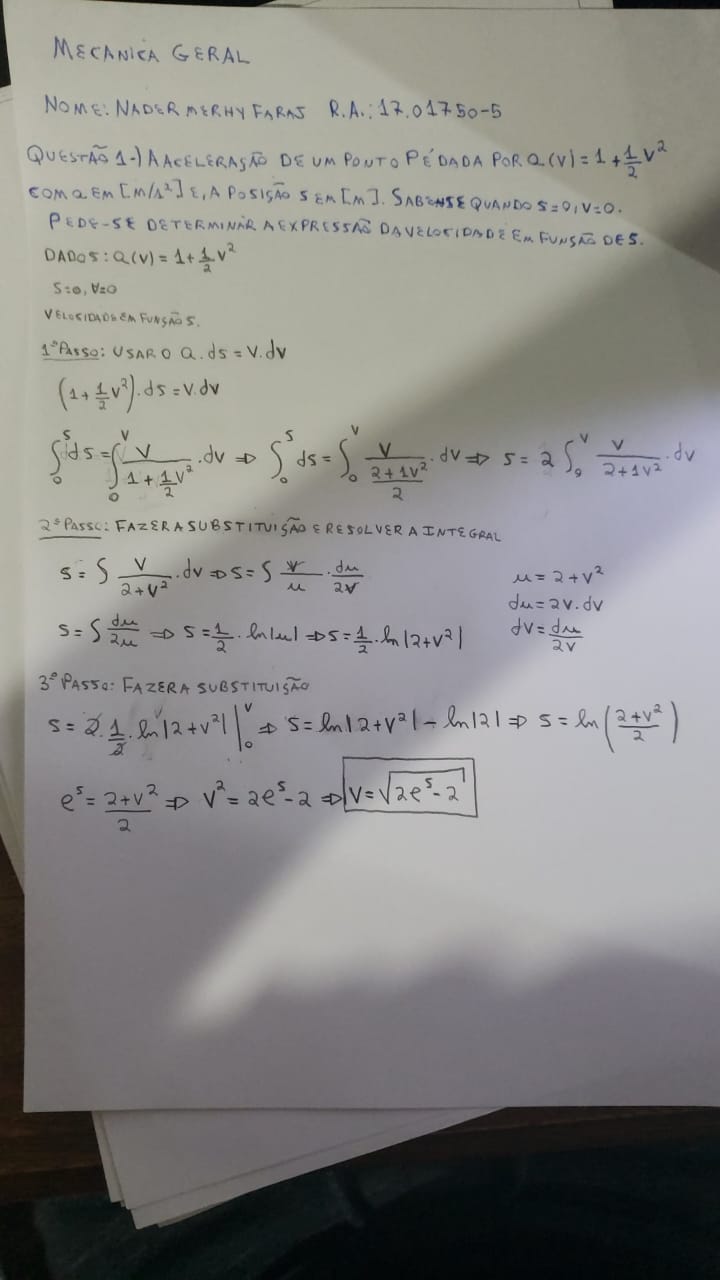 MECANICA GERAL
NOME: NADER MERHY FARAJ R.A.: 17.01750-5
QUESTÃO 1-) A ACELERAÇÃO DE UM PONTO P É DADA POR a(V) = 1 + 1/2 V²
COM a EM [m/s²] E, A POSIÇÃO S EM [m]. SABENSE QUANDO S=0, V=0.
PEDE-SE DETERMINAR A EXPRESSÃO DA VELOCIDADE EM FUNSÃO DE S.
DADOS: a(V) = 1 + 1/2 V²
S=0, V=0
VELOCIDADE EM FUNSÃO S.
1º PASSO: USAR O a.ds = V.dv
(1 + 1/2 V²).ds = V.dv
∫₀ˢ ds = ∫₀ⱽ V/(1 + 1/2 V²) .dv ⇒ ∫₀ˢ ds = ∫₀ⱽ V/((2+1V²)/2) .dv ⇒ S = 2 ∫₀ⱽ V/(2+1V²) .dv
2º PASSO: FAZER A SUBSTITUIÇÃO E RESOLVER A INTEGRAL
S = ∫ V/(2+V²) .dv ⇒ S = ∫ V/u . du/2V u = 2+V²
du = 2V.dv
S = ∫ du/2u ⇒ S = 1/2 . ln|u| ⇒ S = 1/2 . ln|2+V²| dv = du/2V
3º PASSO: FAZER A SUBSTITUIÇÃO
S = 2. 1/2 . ln|2+V²| |₀ⱽ ⇒ S = ln|2+V²| - ln|2| ⇒ S = ln((2+V²)/2)
eˢ = (2+V²)/2 ⇒ V² = 2eˢ-2 ⇒ V = √(2eˢ-2)